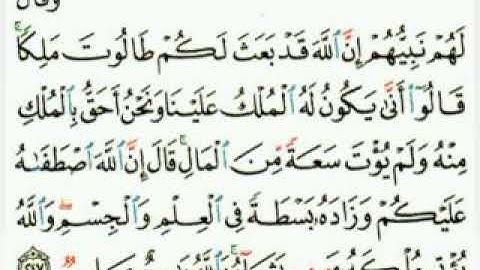 وقال
لَهُمْ نَبِيُّهُمْ إِنَّ ٱللَّهَ قَدْ بَعَثَ لَكُمْ طَالُوتَ مَلِكًا ۚ
قَالُوٓا۟ أَنَّىٰ يَكُونُ لَهُ ٱلْمُلْكُ عَلَيْنَا وَنَحْنُ أَحَقُّ بِٱلْمُلْكِ
مِنْهُ وَلَمْ يُؤْتَ سَعَةً مِّنَ ٱلْمَالِ ۚ قَالَ إِنَّ ٱللَّهَ ٱصْطَفَىٰهُ
عَلَيْكُمْ وَزَادَهُۥ بَسْطَةً فِى ٱلْعِلْمِ وَٱلْجِسْمِ ۖ وَٱللَّهُ